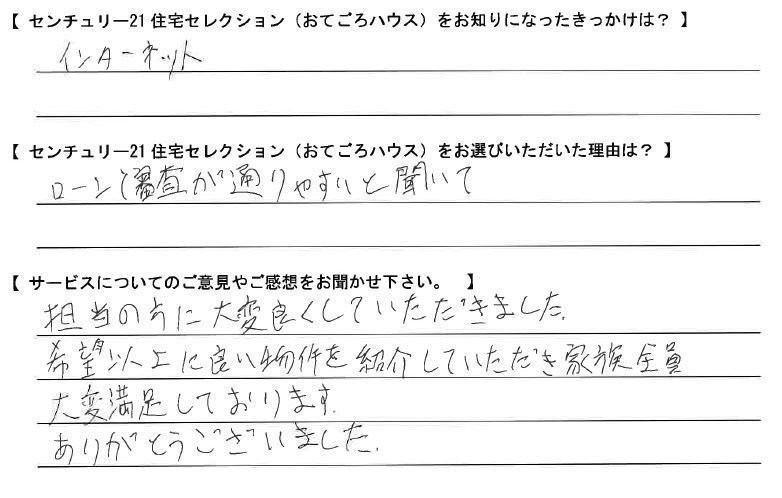 【 センチュリー21 住宅セレクション（おてごろハウス）をお知りになったきっかけは？ 】
インターネット
【 センチュリー21 住宅セレクション（おてごろハウス）をお選びいただいた理由は？ 】
ローン審査が通りやすいと聞いて
【 サービスについてのご意見やご感想をお聞かせ下さい。 】
担当の方に大変良くしていただきました.
希望以上に良い物件を紹介していただき家族全員
大変満足しております.
ありがとうございました.